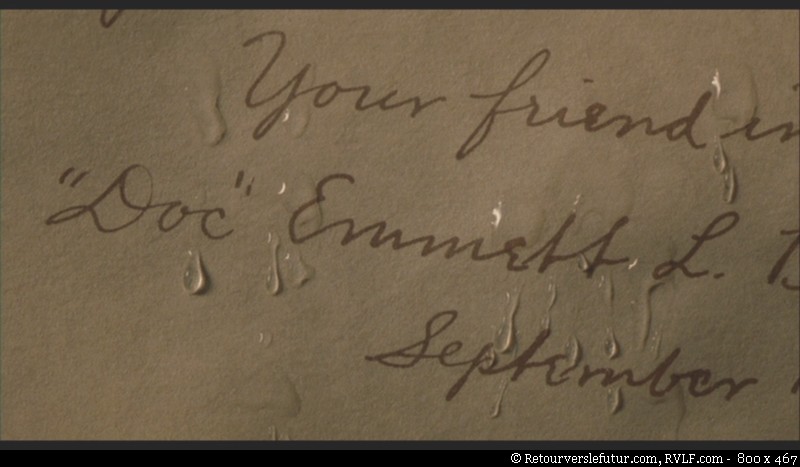 Your friend in
"Doc" Emmett L. B
September
© Retourverslefutur.com, RVLF.com - 800 x 467